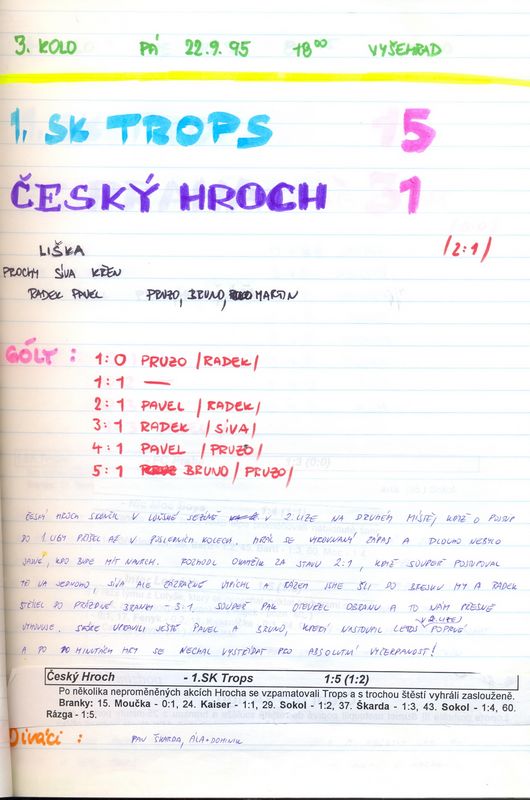 3. KOLO PÁ 22.9.95 18⁰⁰ VYŠEHRAD
1. SK TROPS 5
ČESKÝ HROCH 1
LIŠKA /2:1/
PROCHY SÍVA KŘEN
RADEK PAVEL PRUZO, BRUNO, MARTIN
GÓLY :
1:0 PRUZO /RADEK/
1:1 —
2:1 PAVEL /RADEK/
3:1 RADEK /SÍVA/
4:1 PAVEL /PRUZO/
5:1 BRUNO /PRUZO/
ČESKÝ HROCH SKONČIL V LOŇSKÉ SEZÓNĚ V 2. LIZE NA DRUHÉM MÍSTĚ, KDYŽ O POSTUP
DO 1. LIGY PŘIŠEL AŽ V POSLEDNÍCH KOLECH. HRÁL SE VYROVNANÝ ZÁPAS A DLOUHO NEBYLO
JASNÉ, KDO BUDE MÍT NAVRCH. ROZHODL OKAMŽIK ZA STAVU 2:1, KDYŽ SOUPEŘ POSTUPOVAL
VA JEDNOHO, SÍVA ALE ZÁZRAČNĚ VYPÍCHL A RÁZEM JSME ŠLI DO BREJKU MY A RADEK
STŘÍLEL DO PRÁZDNÉ BRANKY - 3:1. SOUPEŘ PAK OTEVŘEL OBRANU A TO NÁM PŘESNĚ
VYHOVUJE. SKÓRE UPRAVILI JEŠTĚ PAVEL A BRUNO, KTERÝ NASTOUPIL LETOS (V 2. LIZE) POPRVÉ
A PO MINUTÁCH HRY SE NECHAL VYSTŘÍDAT PRO ABSOLUTNÍ VYČERPANOST!
Český Hroch - 1.SK Trops 1:5 (1:2)
Po několika neproměněných akcích Hrocha se vzpamatovali Trops a s trochou štěstí vyhráli zaslouženě.
Branky: 15. Moučka - 0:1, 24. Kaiser - 1:1, 29. Sokol - 1:2, 37. Škarda - 1:3, 43. Sokol - 1:4, 60.
Rázga - 1:5.
Diváci : PAN ŠKARDA, ALA+DOMINIK